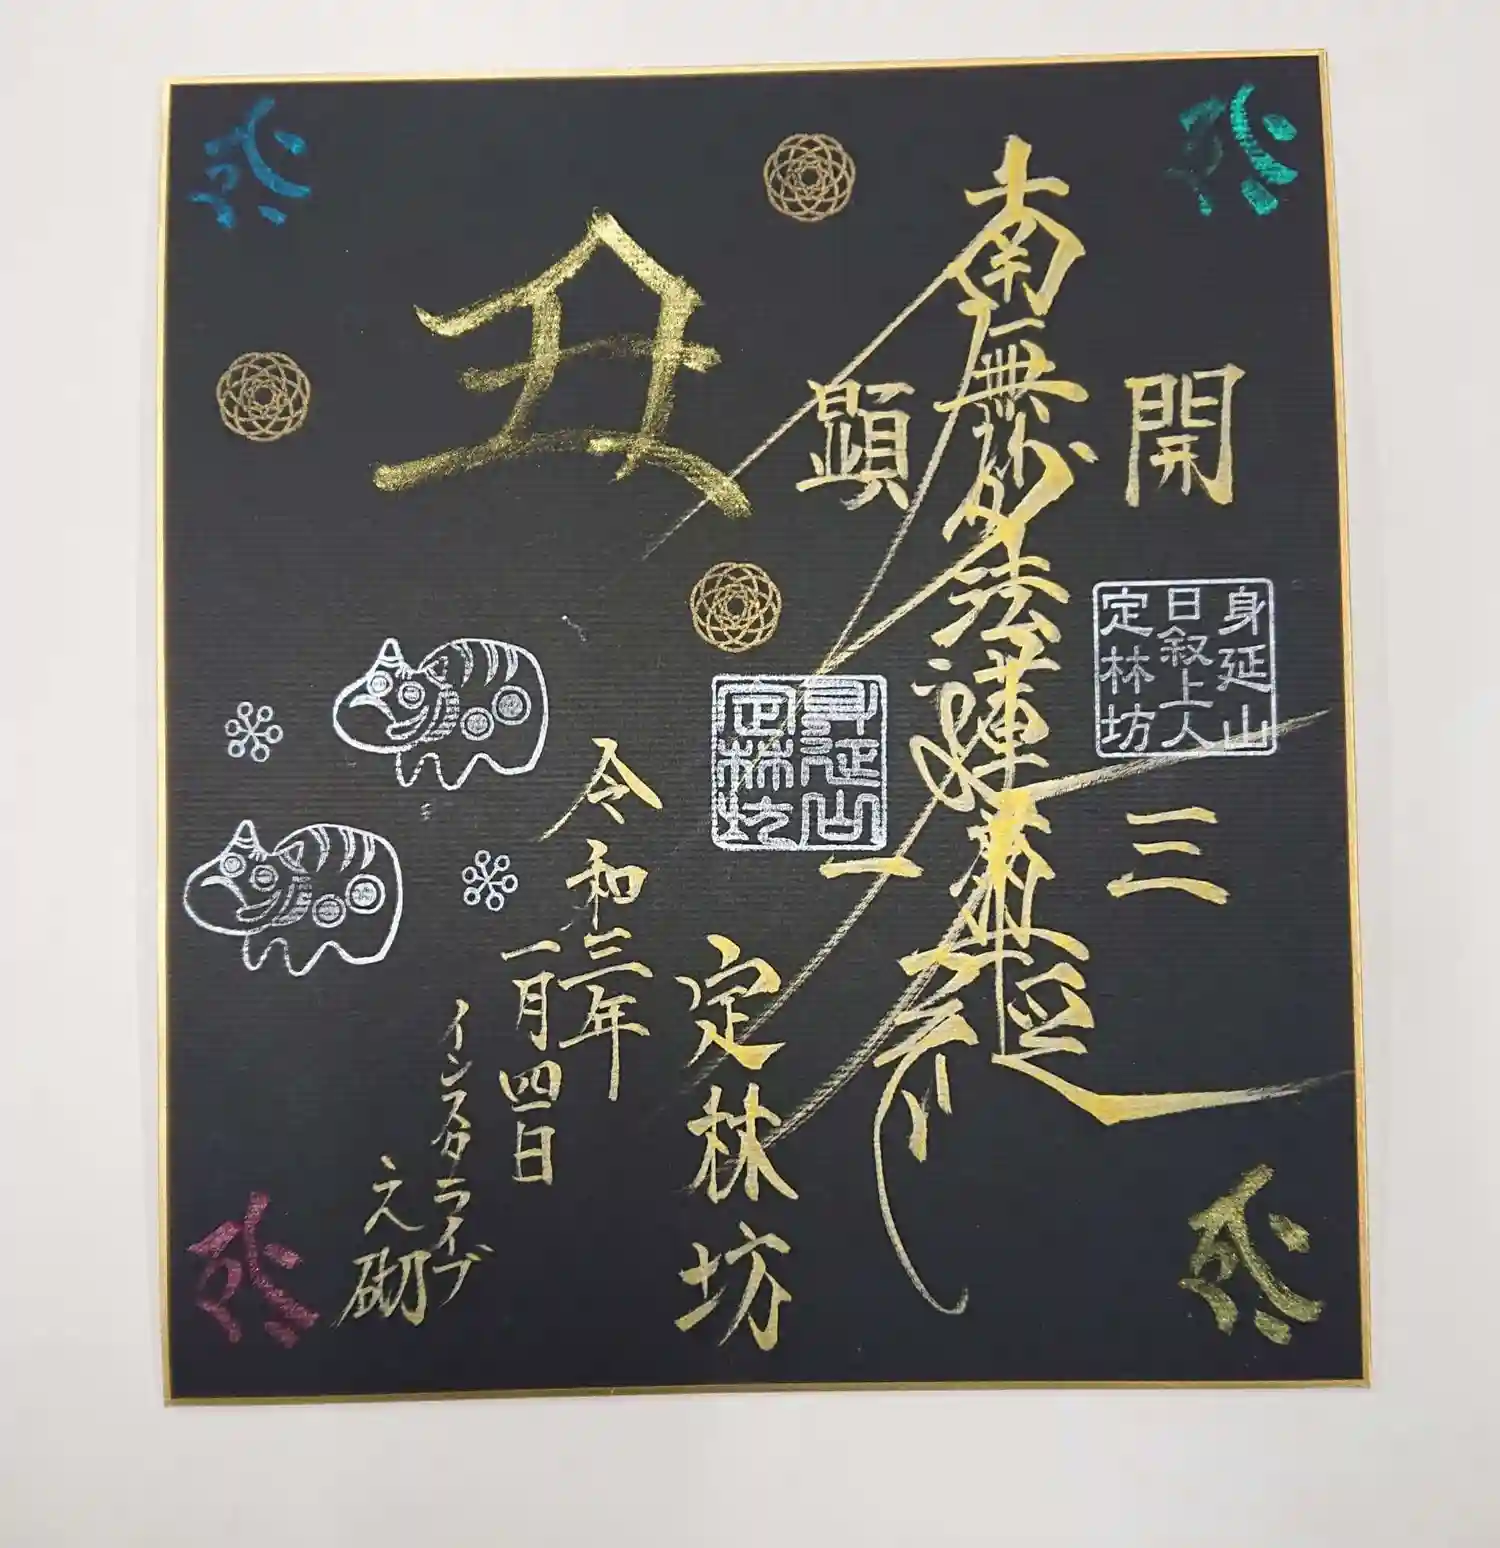 開三
身延山
日叙上人
定林坊
南無妙法蓮華経
顕一
身延山
定林坊
定林坊
丑
令和三年
一月四日
インスタライブ
之砌